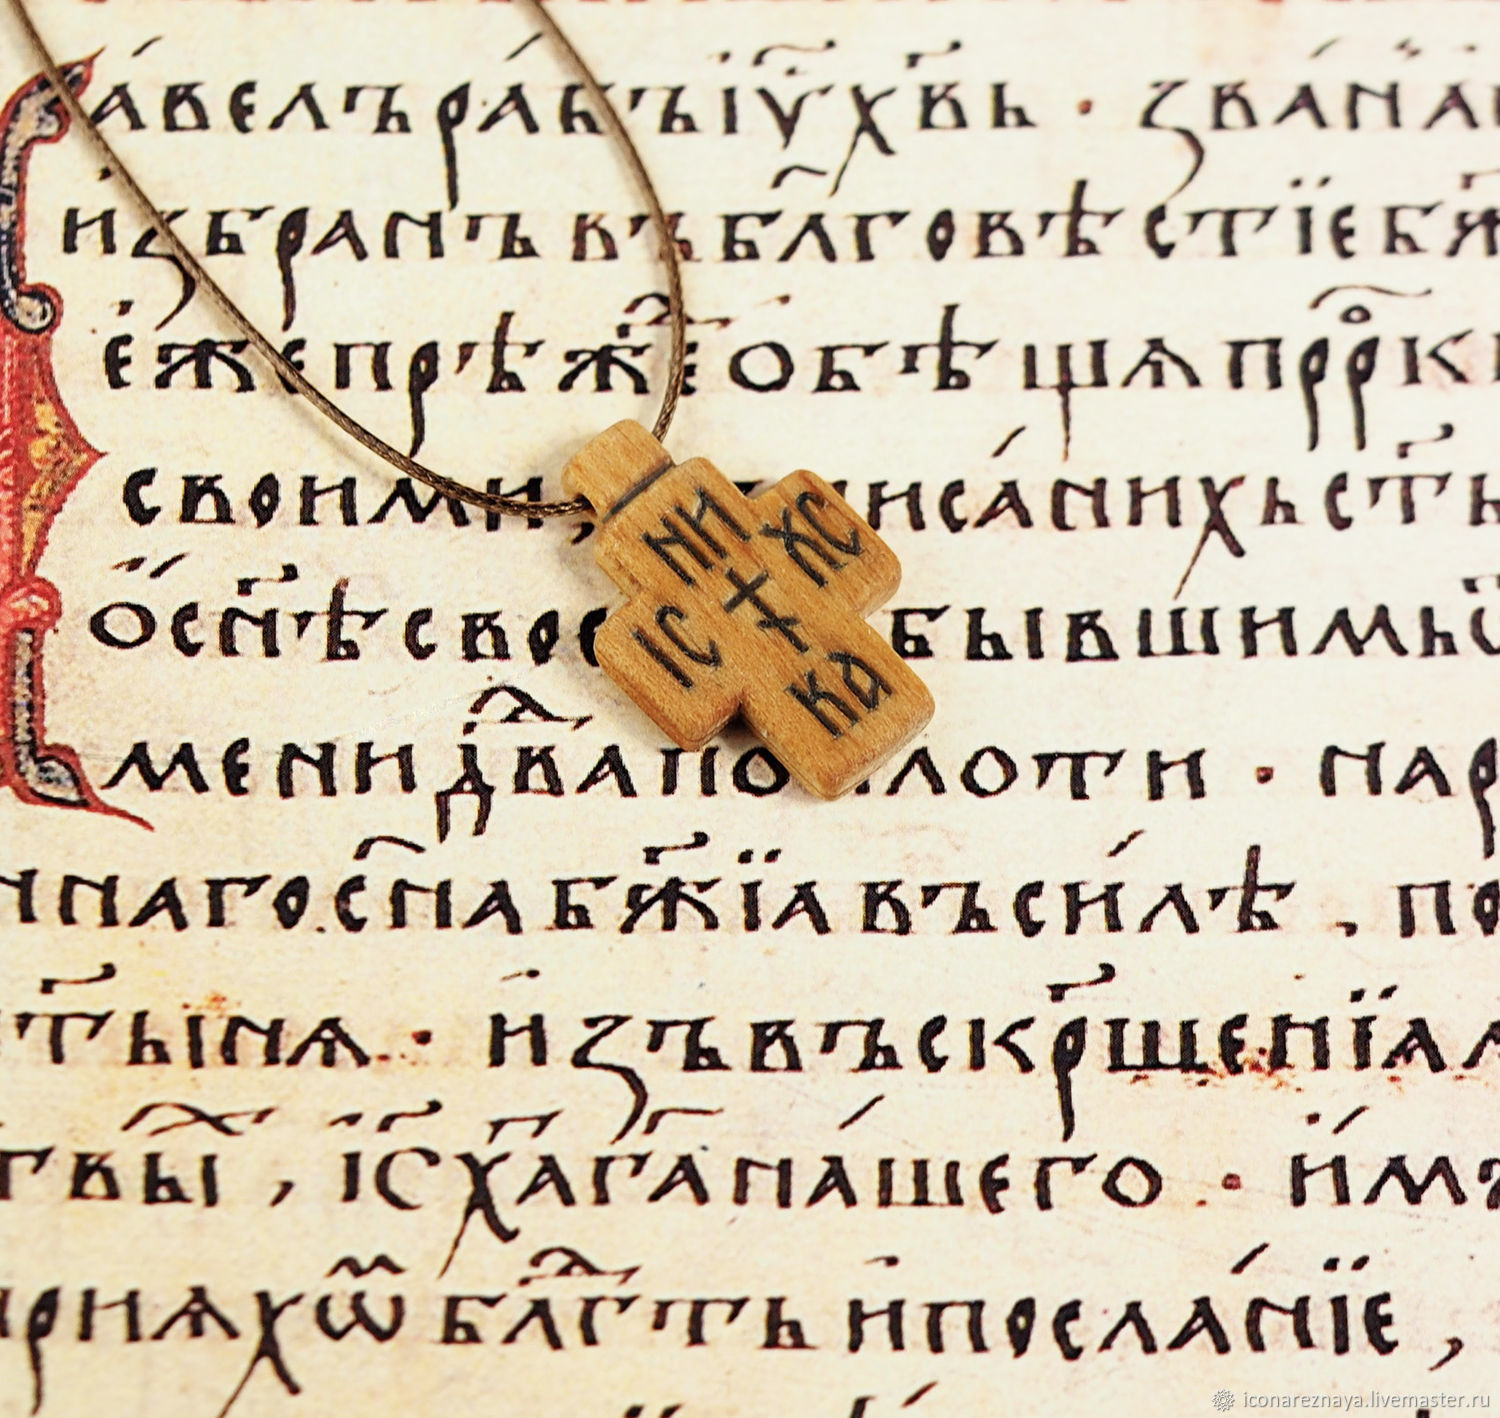 авелъ рабъ іу҃ хв҃ь · званъ
избранъ въ бл҃говѣстїе бж҃
еже прѣже обѣща прⷪ҇рк
своими, писанихь ст҃ы
ѡ сн҃ѣ свое бывшимь ѿ
мени дв҃ва по плоти · нар
ннаго сн҃а бж҃їа въ силѣ, по
ст҃ынѧ · изъ въскрⷭ҇шенїа
твы, іс҃ х҃а г҃а нашего · имъ
приѧхѡⷨ бл҃гⷣть и посланїе,
НИ
ІС ХС
КА
iconareznaya.livemaster.ru